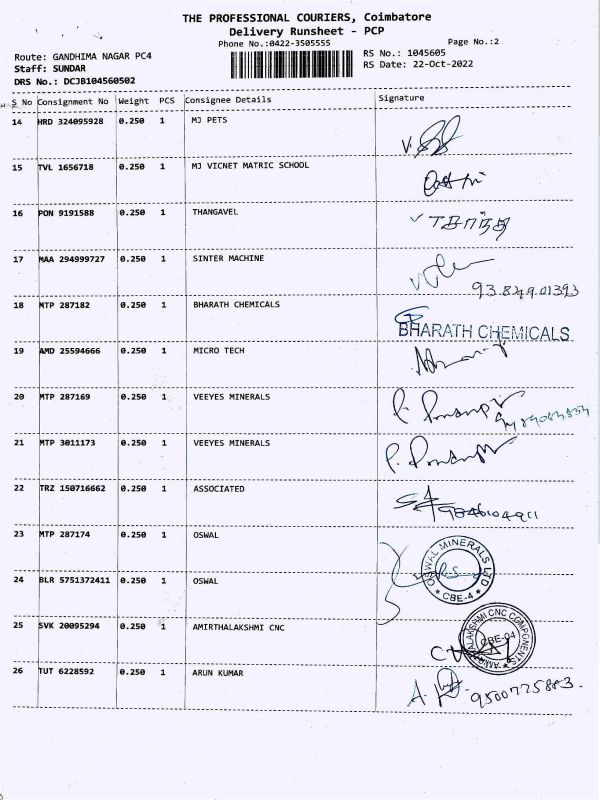 THE PROFESSIONAL COURIERS, Coimbatore
Delivery Runsheet - PCP
Phone No.:0422-3505555
Page No.:2
Route: GANDHIMA NAGAR PC4
RS No.: 1045605
Staff: SUNDAR
RS Date: 22-Oct-2022
DRS No.: DCJB104560502
S No Consignment No Weight PCS Consignee Details Signature
14 HRD 324095928 0.250 1 MJ PETS
15 TVL 1656718 0.250 1 MJ VICNET MATRIC SCHOOL
16 PON 9191588 0.250 1 THANGAVEL
17 MAA 294999727 0.250 1 SINTER MACHINE
18 MTP 287182 0.250 1 BHARATH CHEMICALS
BHARATH CHEMICALS
19 AMD 25594666 0.250 1 MICRO TECH
20 MTP 287169 0.250 1 VEEYES MINERALS
21 MTP 3011173 0.250 1 VEEYES MINERALS
22 TRZ 150716662 0.250 1 ASSOCIATED
9846104911
23 MTP 287174 0.250 1 OSWAL
OSWAL MINERALS LTD
* CBE-4 *
24 BLR 5751372411 0.250 1 OSWAL
25 SVK 20095294 0.250 1 AMIRTHALAKSHMI CNC
AMIRTHALAKSHMI CNC COMPONENTS
CBE-04
26 TUT 6228592 0.250 1 ARUN KUMAR
9500725883.